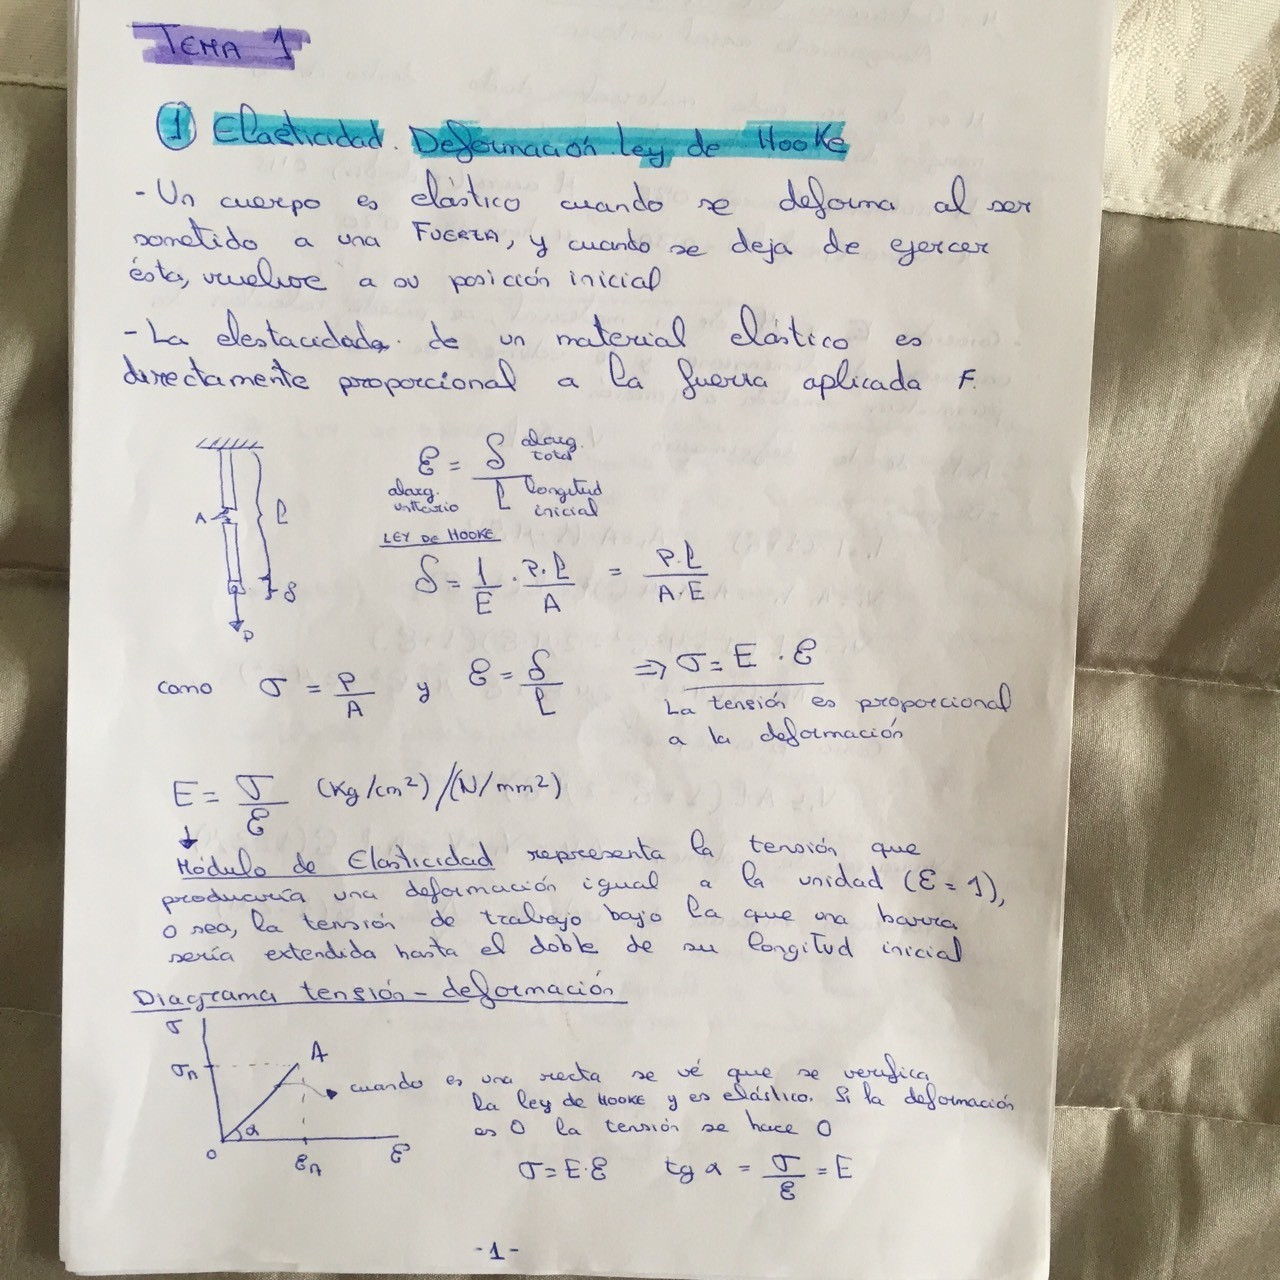 TEMA 1
1 Elasticidad. Deformación. Ley de HOOKE
- Un cuerpo es elástico cuando se deforma al ser
sometido a una FUERZA, y cuando se deja de ejercer
ésta, vuelve a su posición inicial
- La elestacidad de un material elástico es
directamente proporcional a la fuerza aplicada F.
A
l
δ
P
ε = δ / l
alarg. total
alarg. unitario
longitud inicial
LEY DE HOOKE
δ = 1/E · P·l/A = P·l/A·E
como σ = P/A y ε = δ/l ⇒ σ = E · ε
La tensión es proporcional
a la deformación
E = σ/ε (Kg/cm²)/(N/mm²)
Módulo de Elasticidad representa la tensión que
produciría una deformación igual a la unidad (ε = 1),
o sea, la tensión de trabajo bajo la que una barra
sería extendida hasta el doble de su longitud inicial
Diagrama tensión - deformación
σ
σA
A
α
0
εA
ε
cuando es una recta se vé que se verifica
la ley de HOOKE y es elástico. Si la deformación
es 0 la tensión se hace 0
σ = E·ε tg α = σ/ε = E
-1-